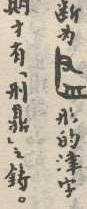 断为形的字
期才有「刑鼎」之铸。